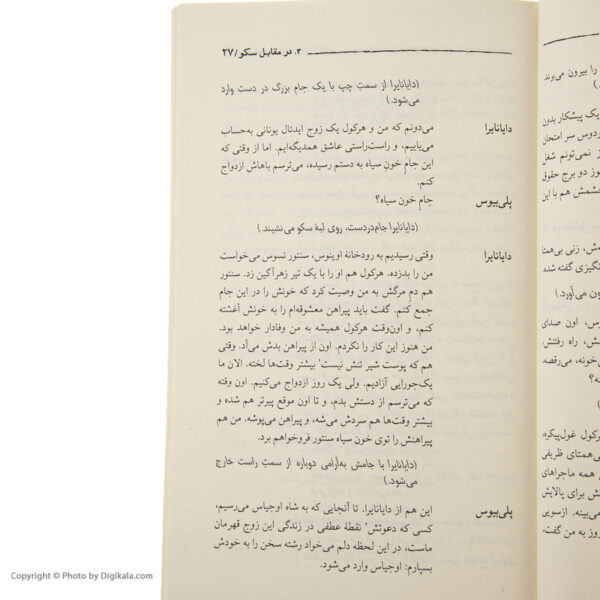 ۳. در مقابل سکو/ ۲۷
(دایانایرا از سمتِ چپ با یک جام بزرگ در دست وارد
می‌شود.)
دایانایرا
می‌دونم که من و هرکول یک زوج ایدئال یونانی به‌حساب
می‌یاییم، و راست‌راستی عاشق همدیگه‌ایم. اما از وقتی که
این جام خون سیاه به دستم رسیده، می‌ترسم باهاش ازدواج
کنم.
پلی‌بیوس
جامِ خون سیاه؟
(دایانایرا جام‌دردست، روی لبهٔ سکو می‌نشیند.)
دایانایرا
وقتی رسیدیم به رودخانهٔ اوینوس، سنتور نسوس می‌خواست
من را بدزده. هرکول هم او را با یک تیر زهرآگین زد. سنتور
هم دم مرگش به من وصیت کرد که خونش را در این جام
جمع کنم. گفت باید پیراهن معشوقه‌ام را به خونش آغشته
کنم، و اون‌وقت هرکول همیشه به من وفادار خواهد بود.
من هنوز این کار را نکردم. اون از پیراهن بدش می‌آد. وقتی
هم که پوست شیر تنش نیست٬ بیشتر وقت‌ها لخته. الان ما
یک‌جورایی آزادیم. ولی یک روز ازدواج می‌کنیم. اون وقته
که می‌ترسم از دستش بدم، و تا اون موقع پیرتر هم شده و
بیشتر وقت‌ها هم سردش می‌شه، و پیراهن می‌پوشه. من هم
پیراهنش را توی خون سیاه سنتور فروخواهم برد.
(دایانایرا با جامش به‌آرامی دوباره از سمتِ راست خارج
می‌شود.)
پلی‌بیوس
این هم از دایانایرا. تا آنجایی که به شاه اوجیاس می‌رسیم،
کسی که دعوتش٬ نقطهٔ عطفی در زندگی این زوج قهرمان
ماست، در این لحظه دلم می‌خواد رشته سخن را به خودش
بسپارم: اوجیاس وارد می‌شود.
را بیرون می‌برند.
یک پیشکار بدون
سر امتحان
نمی‌تونم شغل
دو برج حقوق
هم با این
زنی بی‌همتا
گفته شده.
می‌آورد.)
اون صدای
راه رفتنش،
می‌رقصه.
غول‌پیکره،
ظریفی
همه ماجراهای
برای پالایش
می‌بینه. ازسویی
روز به من گفت،
Copyright © Photo by Digikala.com